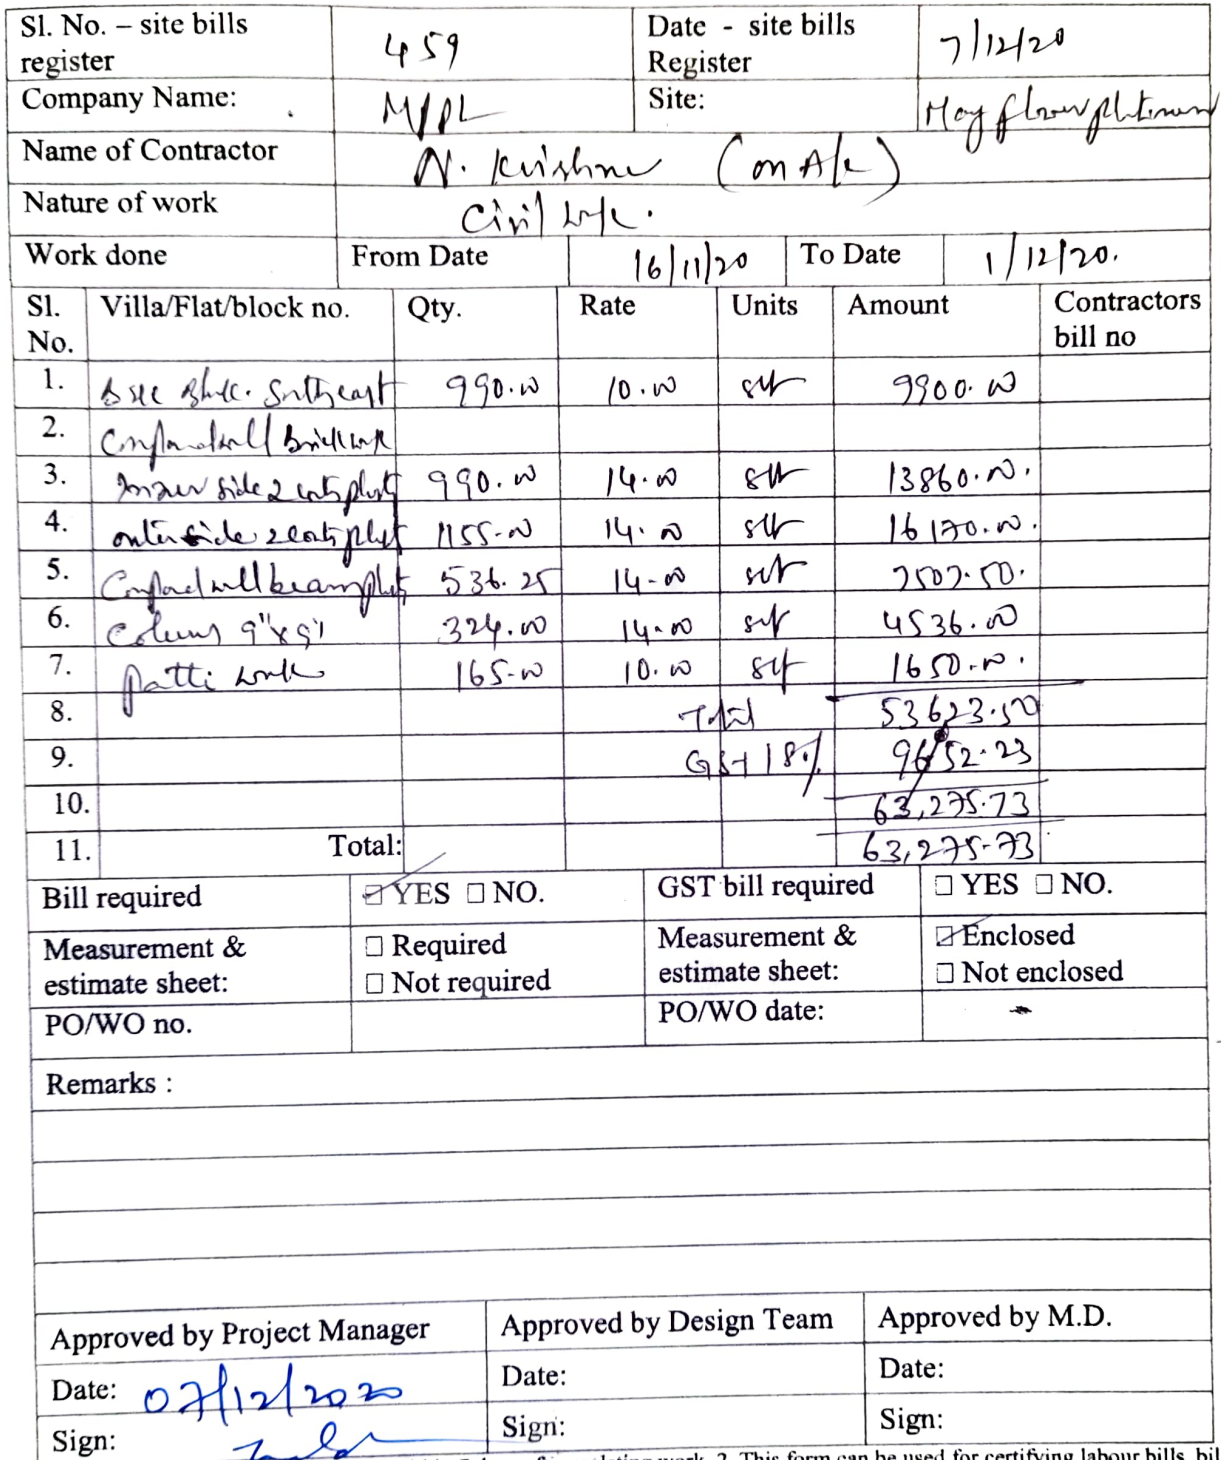 Sl. No. – site bills register 459 Date - site bills Register 7/12/20
Company Name: MPPL Site: May flower platinum
Name of Contractor N. Krishna (on A/c)
Nature of work Civil work.
Work done From Date 16/11/20 To Date 1/12/20.
Sl. No. Villa/Flat/block no. Qty. Rate Units Amount Contractors bill no
1. 990.00 10.00 sft 9900.00
2. Compound wall Brick work
3. Inner side 2 coats 990.00 14.00 sft 13860.00.
4. outer side 2 coats 1155-00 14.00 sft 16170.00.
5. Compound wall beam 536.25 14-00 sft 7507.50.
6. Colums 9"x9" 324.00 14.00 sft 4536.00
7. Patti work 165-00 10.00 sft 1650.00.
8. Total 53623.50
9. GST 18% 9652.23
10. 63,275.73
11. Total: 63,275-73
Bill required ☑ YES ☐ NO. GST bill required ☐ YES ☐ NO.
Measurement & estimate sheet: ☐ Required ☐ Not required Measurement & estimate sheet: ☑ Enclosed ☐ Not enclosed
PO/WO no. PO/WO date:
Remarks :
Approved by Project Manager Approved by Design Team Approved by M.D.
Date: 07/12/2020 Date: Date:
Sign: Sign: Sign:
work. 2. This form can be used for certifying labour bills, bil